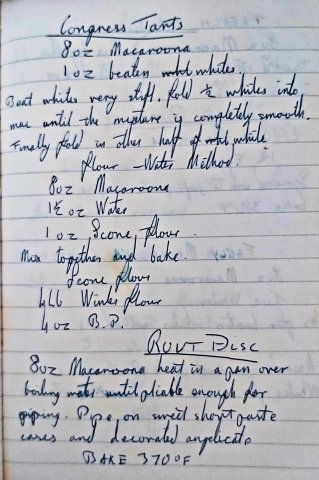 Congress Tarts
8oz Macaroona
1oz beaten whites
Beat whites very stiff, fold ½ whites into
mac until the mixture is completely smooth.
Finally fold in other half of white
flour - Water Method
8oz Macaroona
1½ oz Water
1 oz Scone flour
Mix together and bake.
Scone flour
4lb Winks flour
4 oz B.P.
ROUT DISC
8oz Macaroona heat in a pan over
boiling water until pliable enough for
piping. Pipe on sweet short paste
cases and decorated angelicato
BAKE 370°F